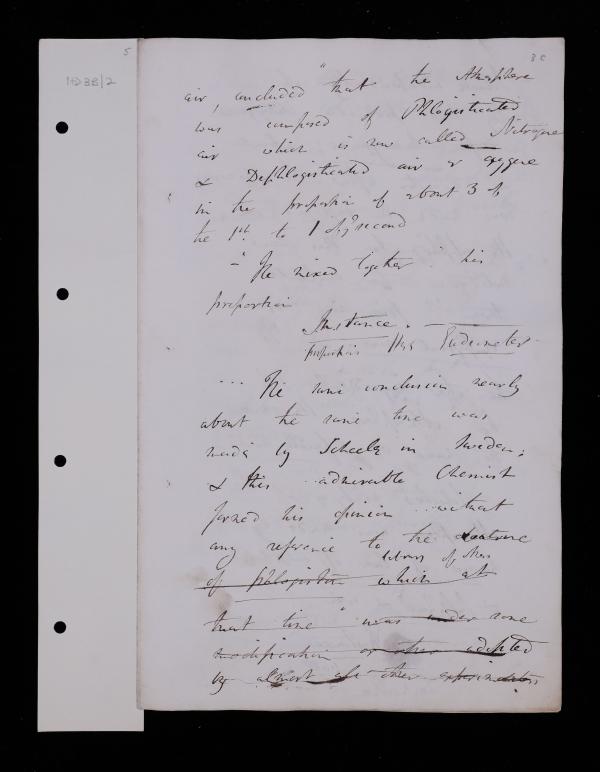 5
HD3B/2
8c
air, concluded "that the Atmosphere
was composed of Phlogisticated
air which is now called Nitrogene
& Dephlogisticated air or oxygene
in the proportion of about 3 of
the 1st. to 1 of ye second
- "He mixed together his
proportion
Instance.
proportions Eudiometer
... The same conclusion nearly
about the same time was
made by Scheele in Sweden;
& this admirable Chemist
formed his opinion without
any reference to the doctrine
labours of others
of phlogiston which at
that time " was under some
modification or other adopted
by almost all other experimenters